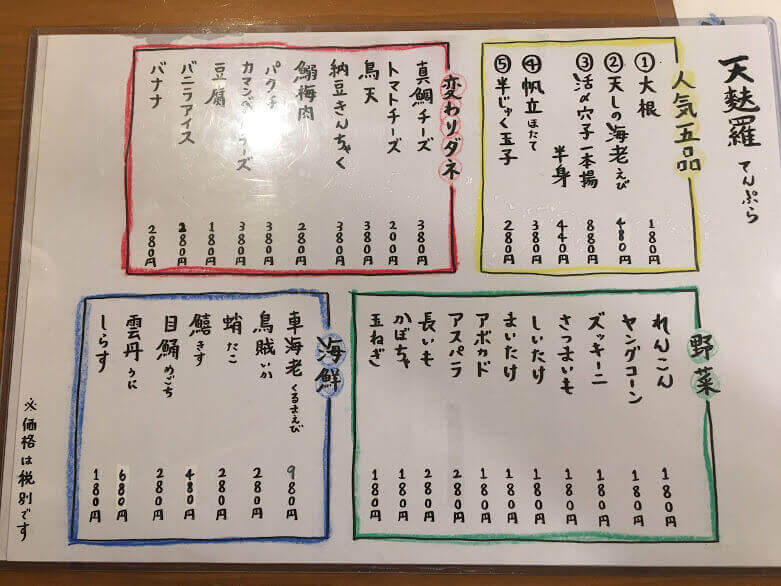 天麩羅 てんぷら
人気五品
①大根 180円
②天しの海老えび 480円
③活〆穴子一本揚 880円
半身 440円
④帆立ほたて 380円
⑤半じゅく玉子 280円
変わりダネ
真鯛チーズ 380円
トマトチーズ 200円
鳥天 380円
納豆きんちゃく 380円
鰯梅肉 280円
パクチ 380円
380円
豆腐 180円
バニラアイス 280円
バナナ 280円
野菜
れんこん 180円
ヤングコーン 180円
ズッキーニ 180円
さつまいも 180円
しいたけ 180円
まいたけ 180円
アボカド 180円
アスパラ 280円
長いも 280円
かぼちゃ 180円
玉ねぎ 180円
海鮮
車海老くるまえび 980円
烏賊いか 280円
蛸たこ 280円
鱚きす 480円
目鯒めごち 280円
雲丹うに 680円
しらす 180円
※価格は税別です